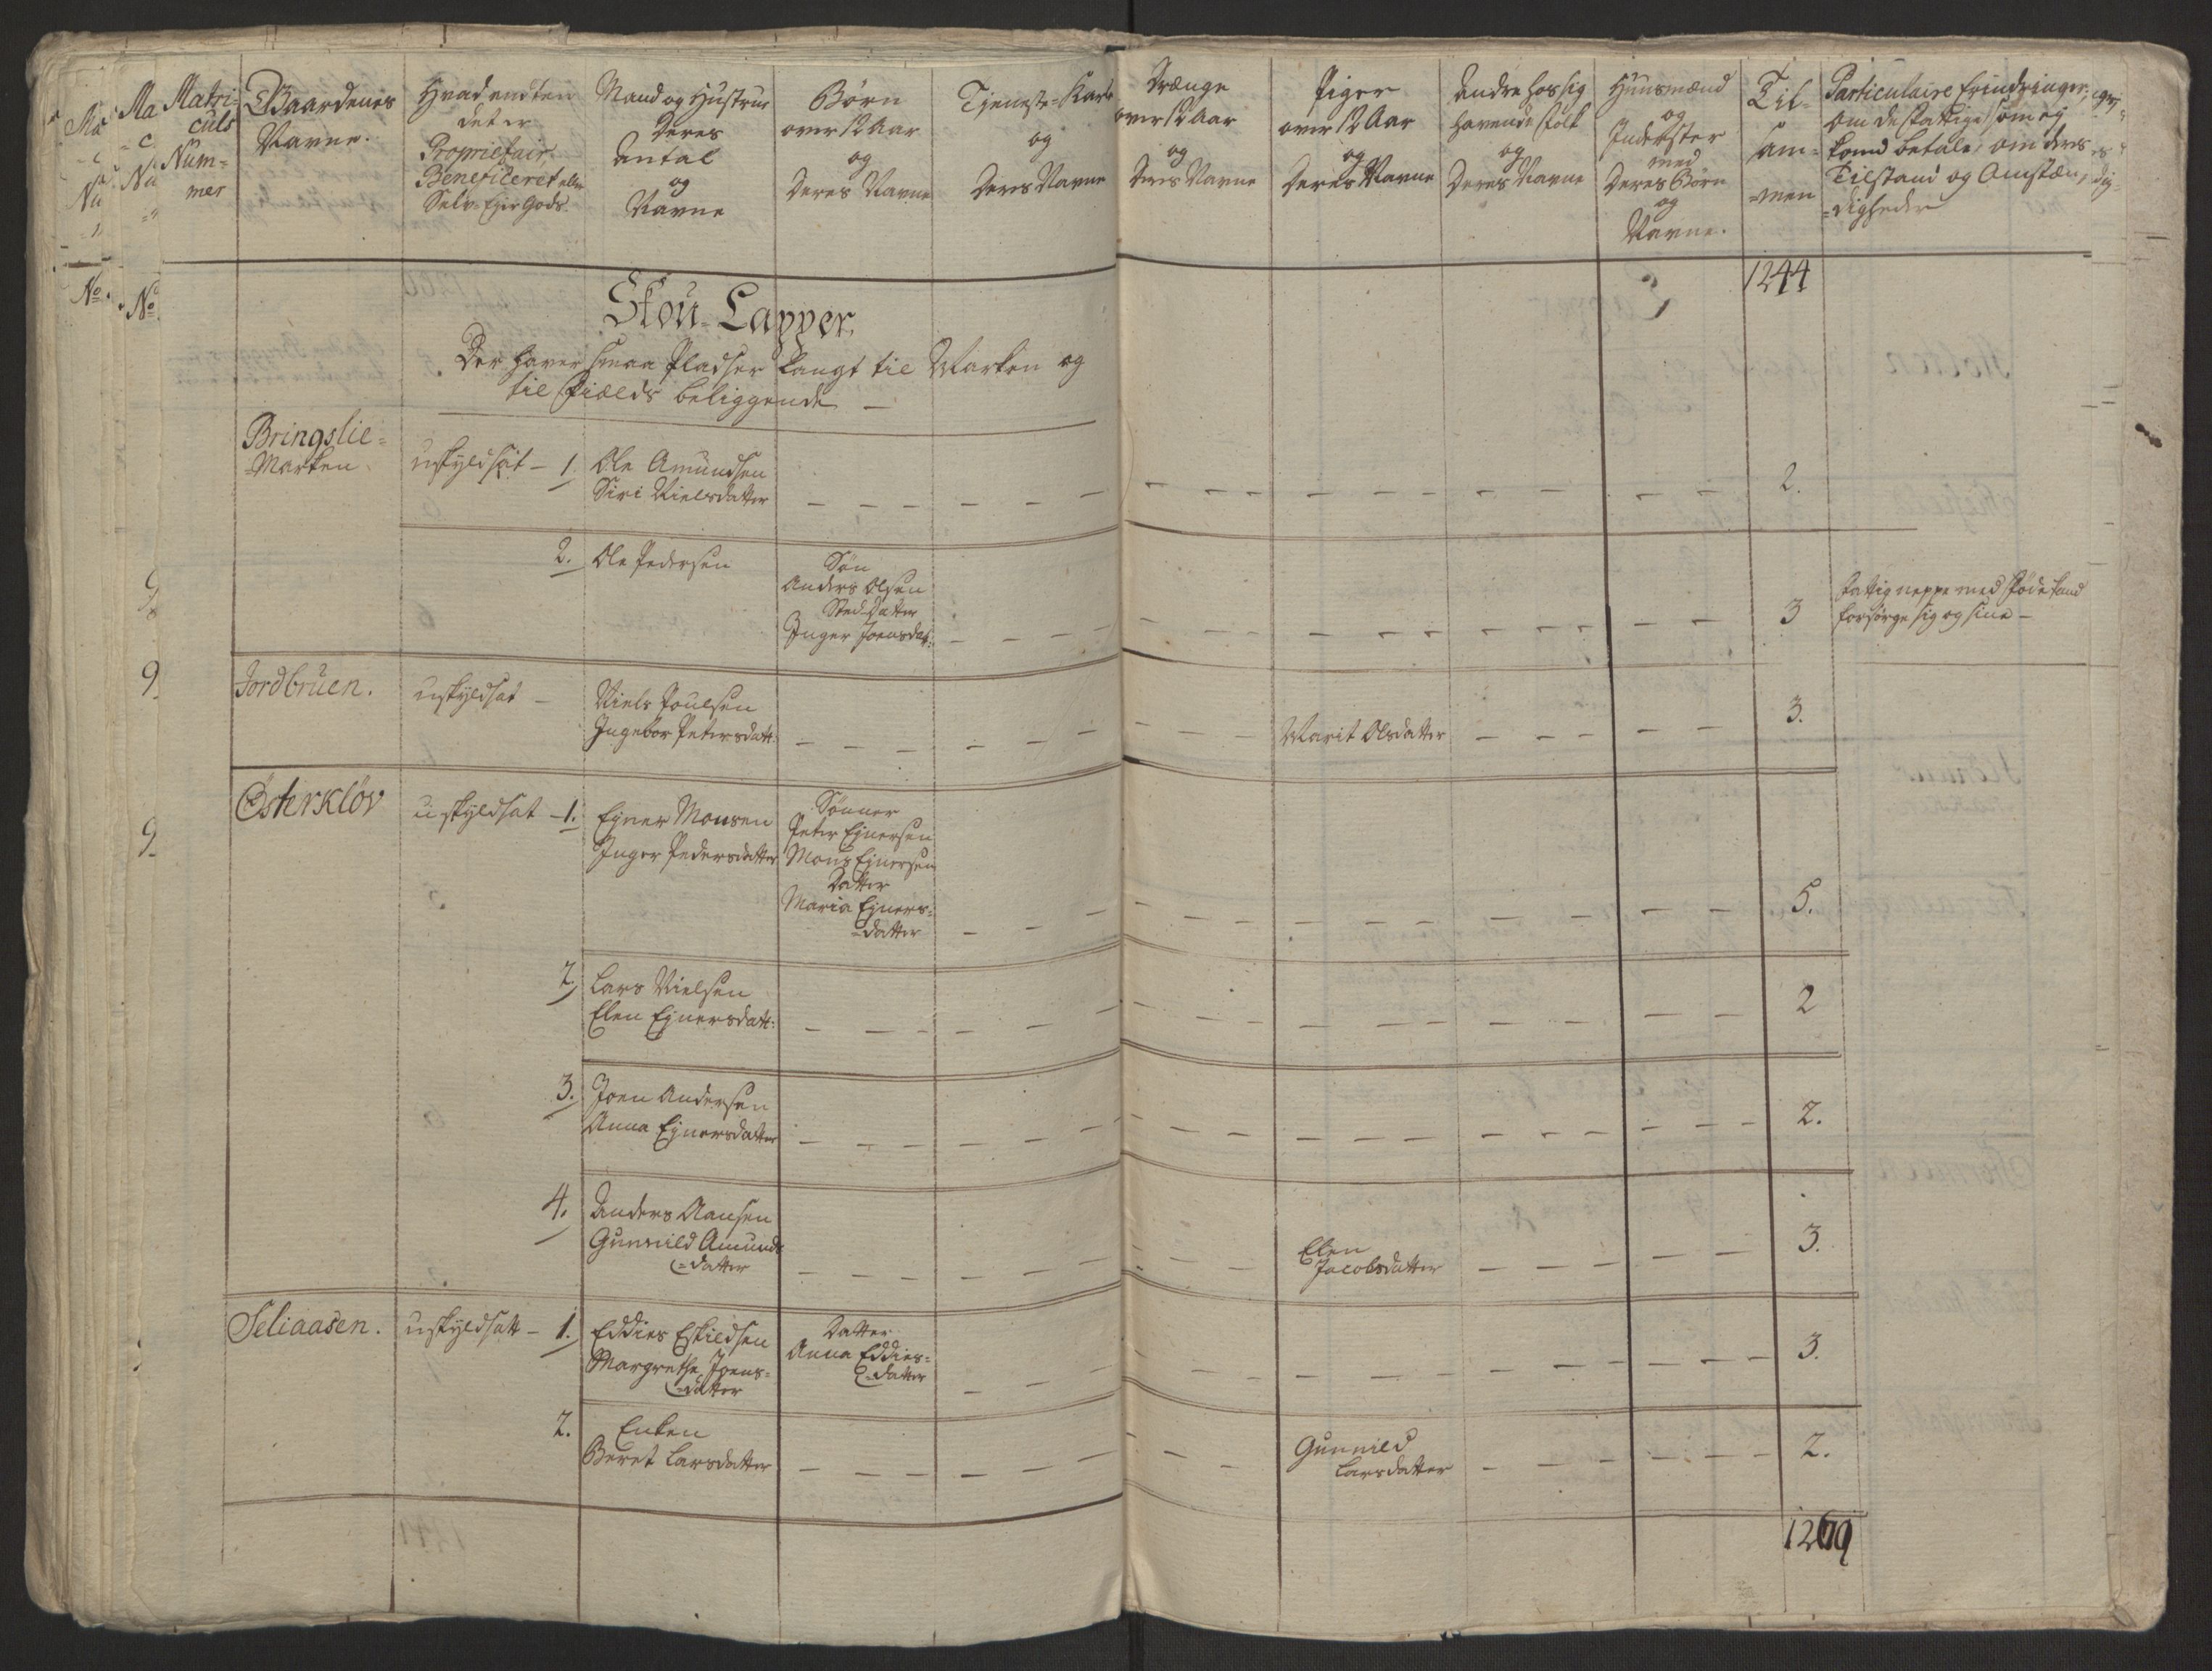 Matri-
culs
Num-
mer
Gaardenes
Navne.
Hvad endten
det er
Proprietair
Beneficeret eller
Selv-Ejer Gods.
Mand og Hustrue
Deres
Antal
og
Navne
Børn
over 12 Aar
og
Deres Navne
Tjeneste-Karle
og
Deres Navne
Drænge
over 12 Aar
og
Deres Navne
Piger
over 12 Aar
og
Deres Navne
Andre hos sig
havende Folk
og
Deres Navne
Huusmænd
og
Inderster
med
Deres Børn
og
Navne.
Til-
sam-
=men
Particulaire Erindringer,
om de fattige som ej
kand betale, om deres
Tilstand og Omstæn,
=digheder
No.
No
1244
Skou-Lapper,
Der haver smaa Pladser langt til Marken og
til Fields beliggende —
Bringslie=
=Marken.
uskyldsat — 1. Ole Amundsen
Siri Nielsdatter
2.
2. Ole Pedersen
Søn
Anders Olsen
Sted-Datter
Inger Joensdat:
3
fattig neppe med Føde kand
forsørge sig og sine —
9.
Jordbruen.
uskyldsat —
Niels Poulsen
Ingebor Petersdatt:
Marit Olsdatter
3.
9.
Østerkløv
uskyldsat — 1. Ejner Monsen
Inger Pedersdatter
Sønner
Peter Ejnersen
Mons Ejnersen
Datter
Maria Ejners=
=datter
5.
2. Lars Nielsen
Elen Ejnersdatt:
2
3. Joen Andersen
Anna Ejnersdatter
2.
4. Anders Aansen
Gunnild Amunds
=datter
Elen
Jacobsdatter
3.
Seliaasen.
uskyldsatt — 1. Eddies Eskildsen
Margrethe Joens=
=datter
Datter
Anna Eddies=
=datter
3.
2. Enken
Beret Larsdatter
Gunnild
Larsdatter
2.
1269